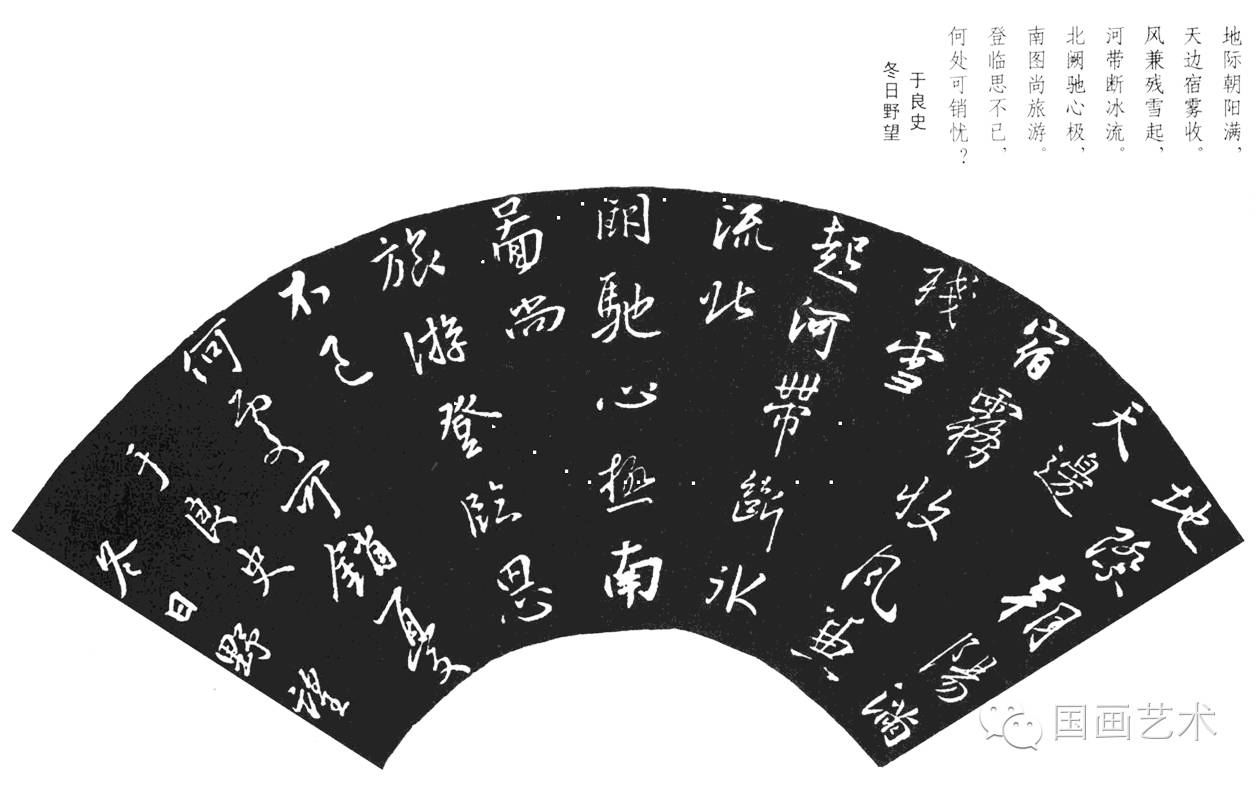 地际朝阳满，
天边宿雾收。
风兼残雪起，
河带断冰流。
北阙驰心极，
南图尚旅游。
登临思不已，
何处可销忧？
于良史
冬日野望
地際朝陽滿
天邊
宿霧收風兼
殘雪
起河帶斷氷
流北
闕馳心極南
圖尚
旅游登臨思
不已
何處可銷憂
于良史
冬日野望
国画艺术